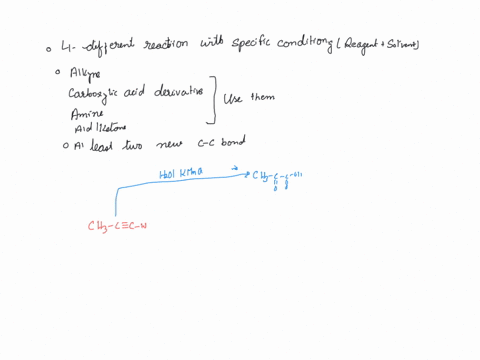 4- different reaction with specific condition (Reagent + Solvent)
Alkyne
Carboxylic acid derivative
Amine
Ald ketone
Use them
At least two new C-C bond
CH3-C-C-OH
O O
CH3-C≡C-H